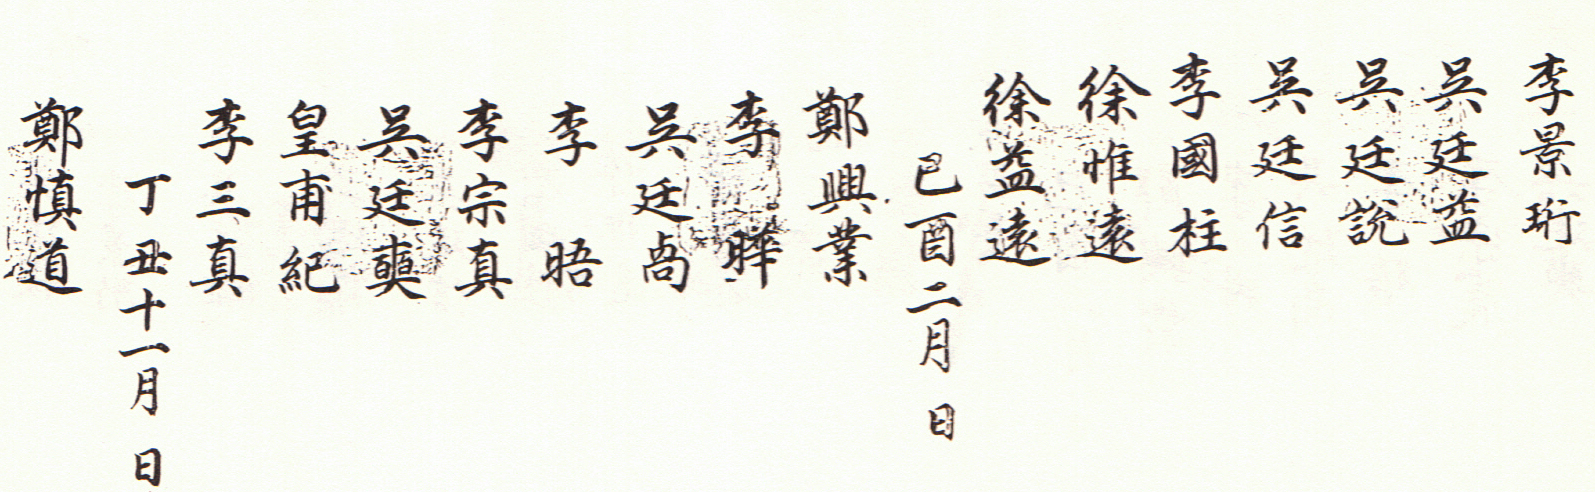 李景珩
吳廷益
吳廷說
吳廷信
李國柱
徐惟遠
徐益遠
己酉二月 日
鄭興業
李曄
吳廷卨
李晤
李宗真
吳廷奭
皇甫紀
李三真
丁丑十一月 日
鄭慎道